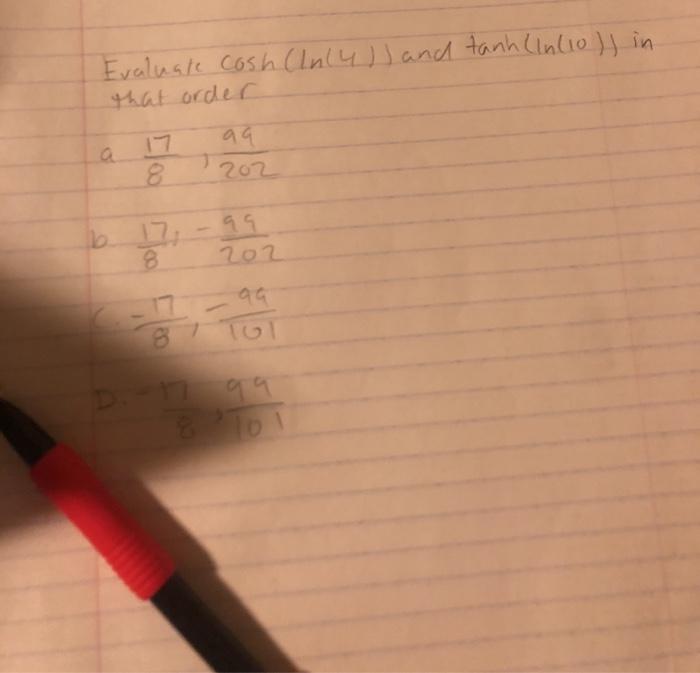 Evaluate cosh(ln(4)) and tanh(ln(10)) in
that order
a 17/8, 99/202
b. 17/8, -99/202
C. -17/8, -99/101
D. -17/8, 99/101